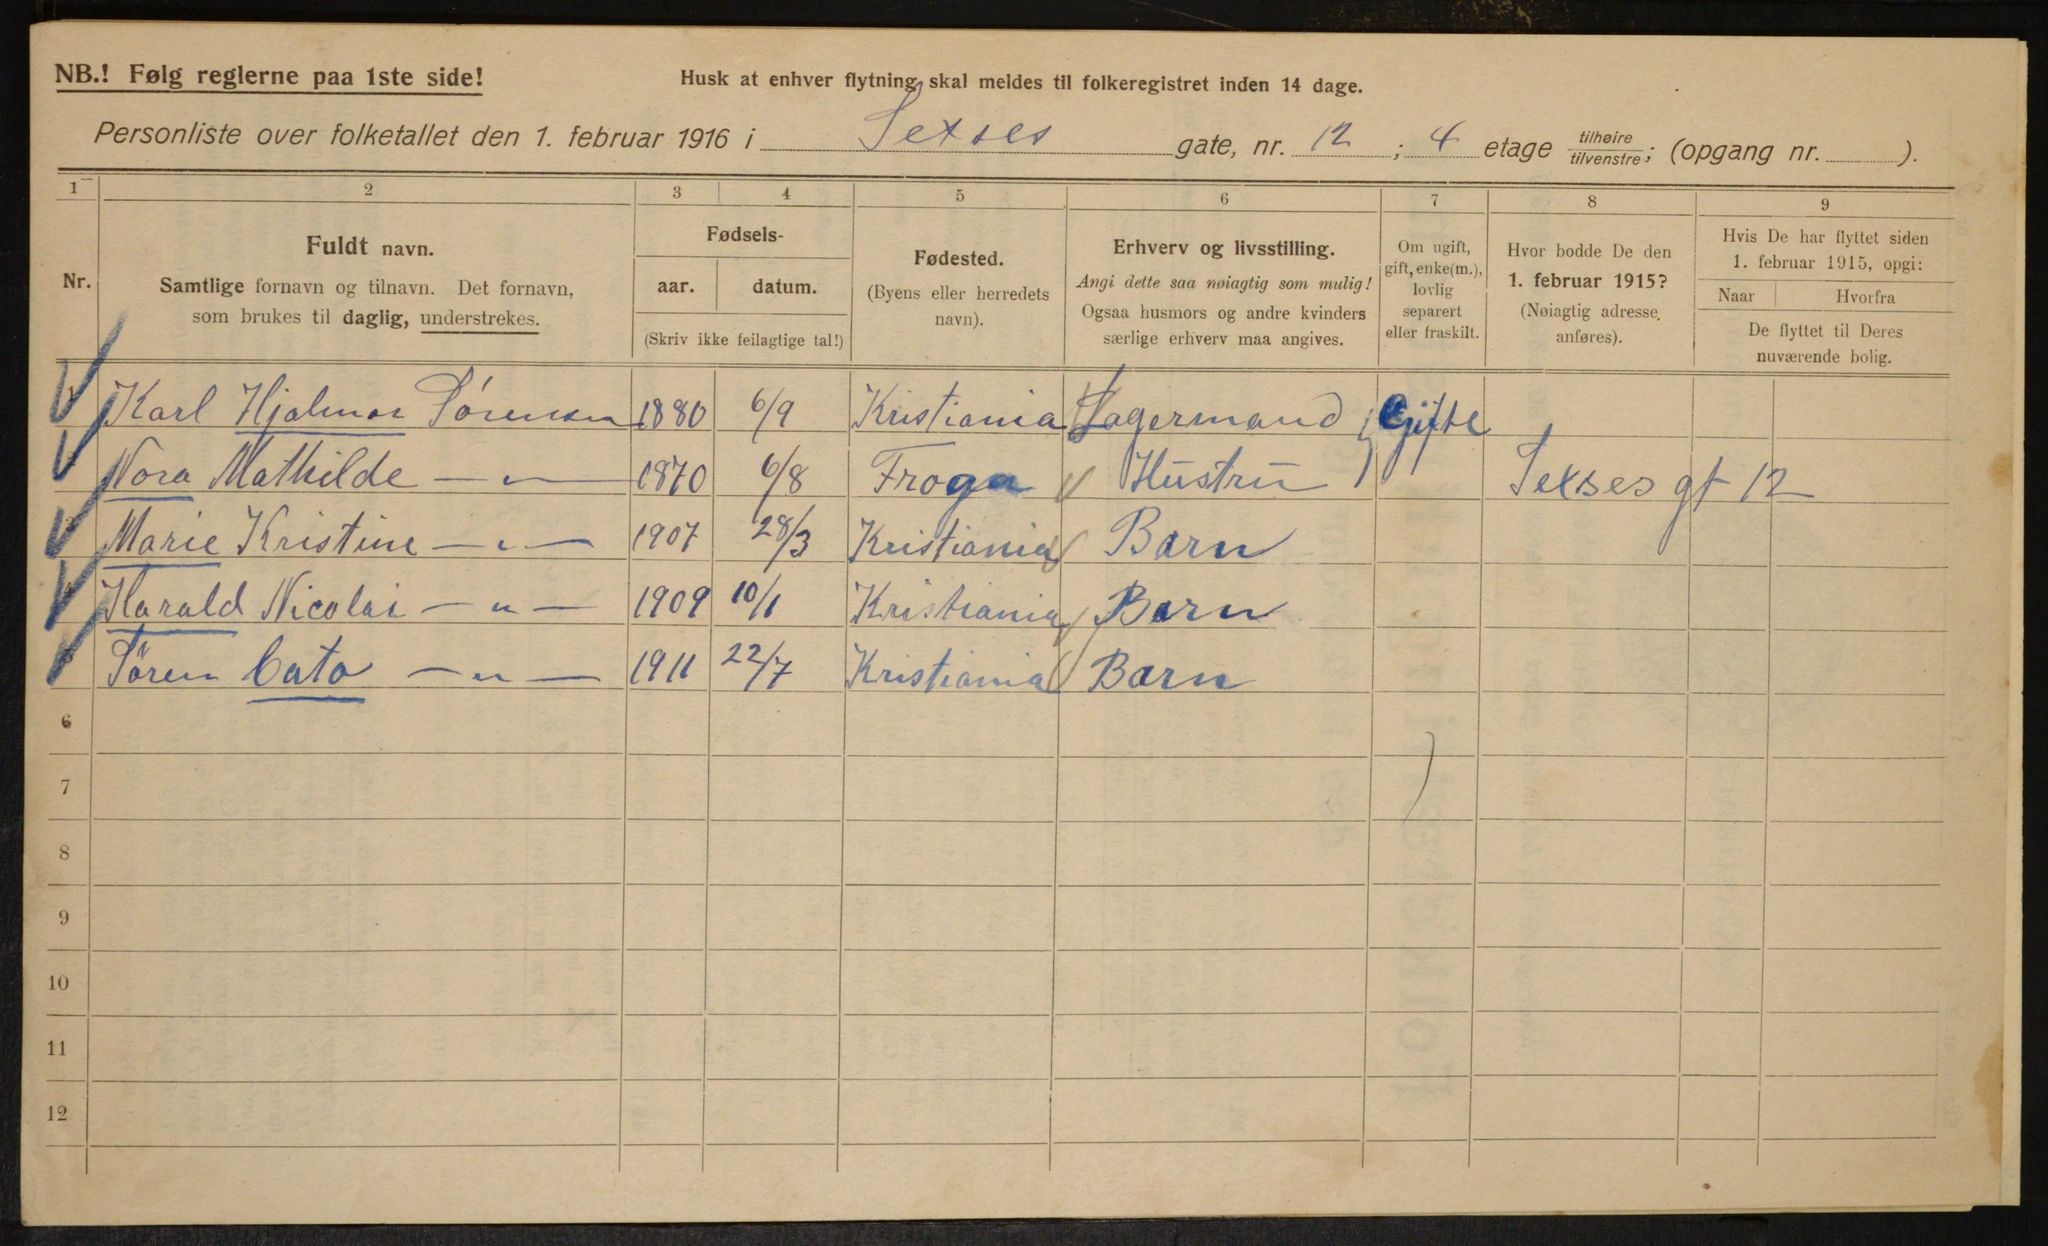 NB.! Følg reglerne paa 1ste side!
Husk at enhver flytning skal meldes til folkeregistret inden 14 dage.
Personliste over folketallet den 1. februar 1916 i Sexses gate, nr. 12 ; 4 etage tilhøire/tilvenstre; (opgang nr. ).
1 2 3 4 5 6 7 8 9
Nr.
Fuldt navn.
Samtlige fornavn og tilnavn. Det fornavn,
som brukes til daglig, understrekes.
Fødsels-
aar. datum.
(Skriv ikke feilagtige tal!)
Fødested.
(Byens eller herredets
navn).
Erhverv og livsstilling.
Angi dette saa nøiagtig som mulig!
Ogsaa husmors og andre kvinders
særlige erhverv maa angives.
Om ugift,
gift, enke(m.),
lovlig
separert
eller fraskilt.
Hvor bodde De den
1. februar 1915?
(Nøiagtig adresse
anføres).
Hvis De har flyttet siden
1. februar 1915, opgi:
Naar Hvorfra
De flyttet til Deres
nuværende bolig.
Karl Hjalmar Sörensen 1880 6/9 Kristiania Lagermand Gifte
Nora Mathilde — " — 1870 6/8 Frogn Hustru Sexses gt 12
Marie Kristine — " — 1907 28/3 Kristiania Barn
Harald Nicolai — " — 1909 10/1 Kristiania Barn
Sören Cato — " — 1911 22/7 Kristiania Barn
6
7
8
9
10
11
12